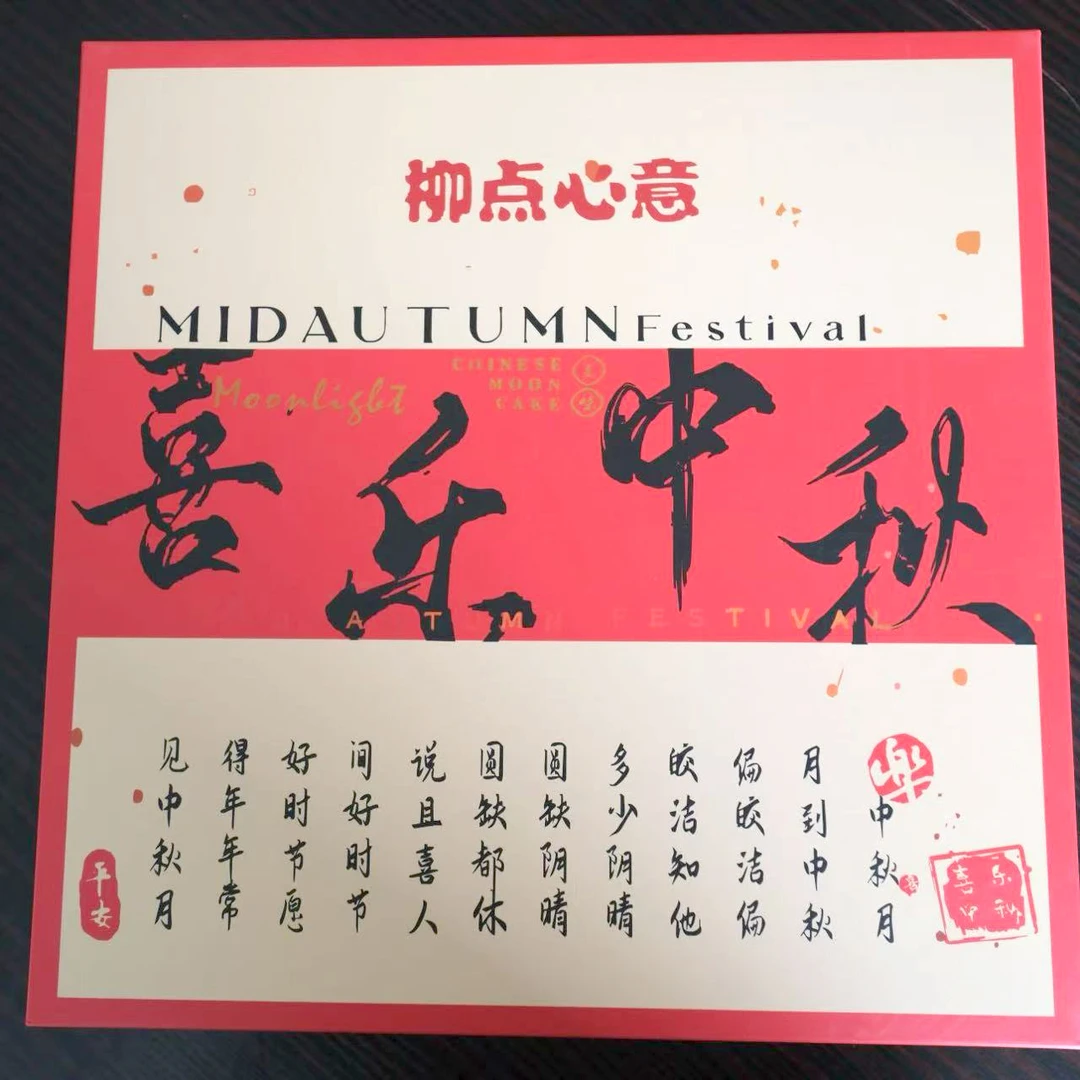 柳点心意
MIDAUTUMN Festival
Moonlight
CHINESE
MOON
CAKE
喜乐中秋
FESTIVAL
中秋月
月到中秋
偏皎洁偏
皎洁知他
多少阴晴
圆缺阴晴
圆缺都休
说且喜人
间好时节
好时节愿
得年年常
见中秋月
喜乐
中秋
平安